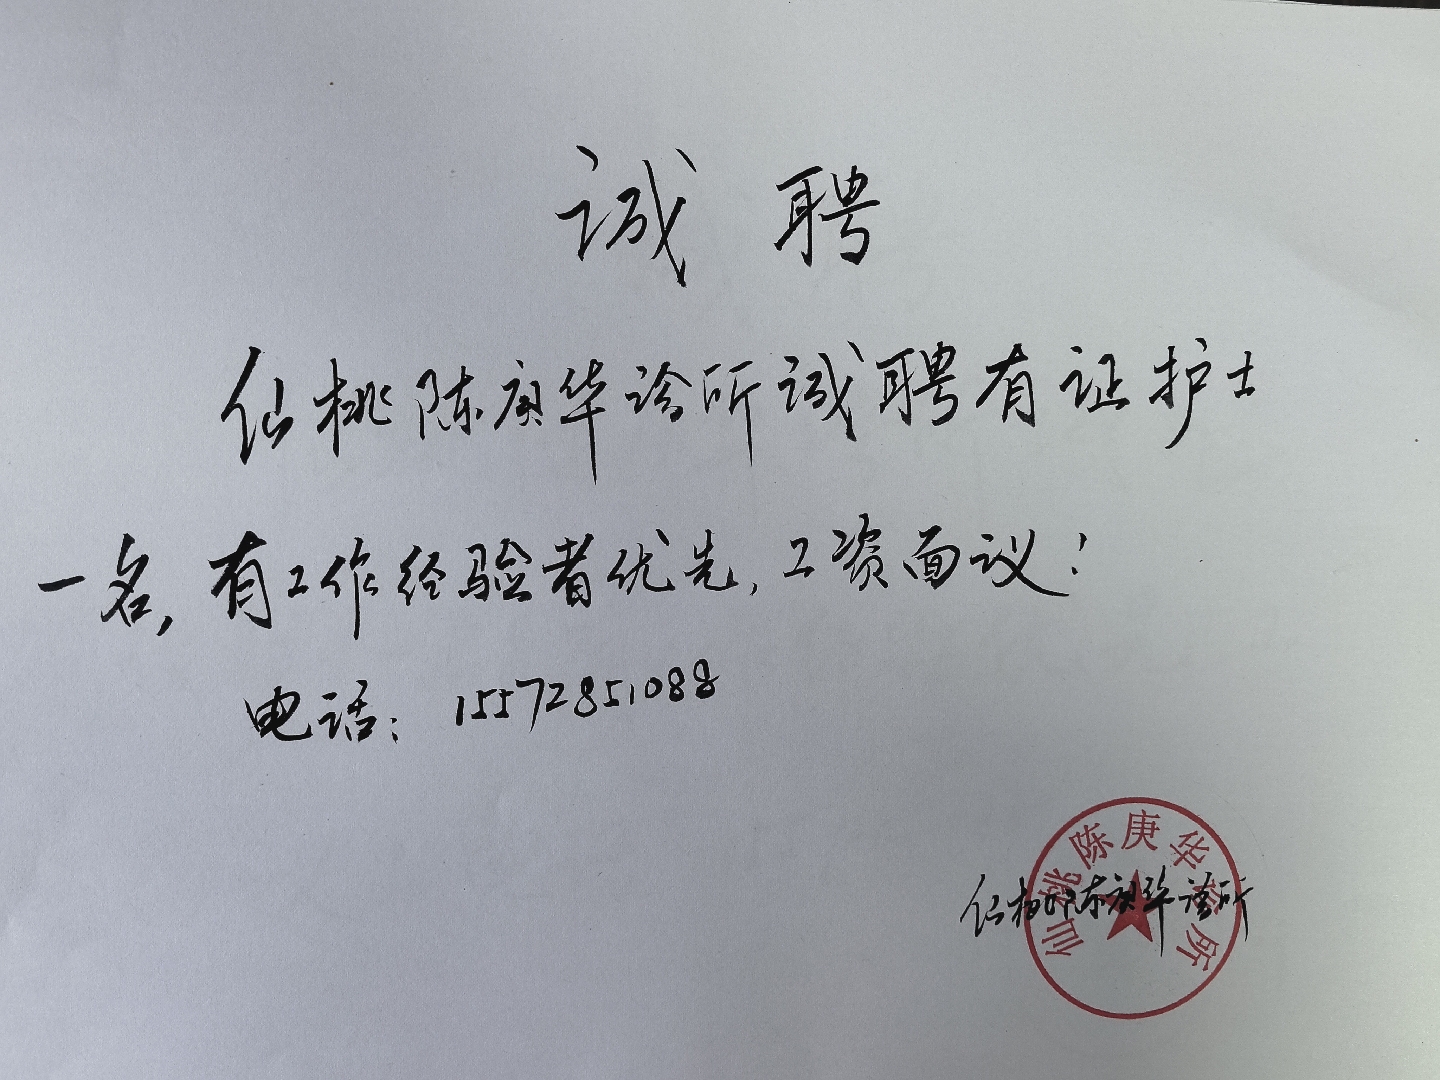 诚聘
仙桃陈庚华诊所诚聘有证护士
一名，有工作经验者优先，工资面议！
电话：15572851088
仙桃陈庚华诊所
仙桃陈庚华诊所